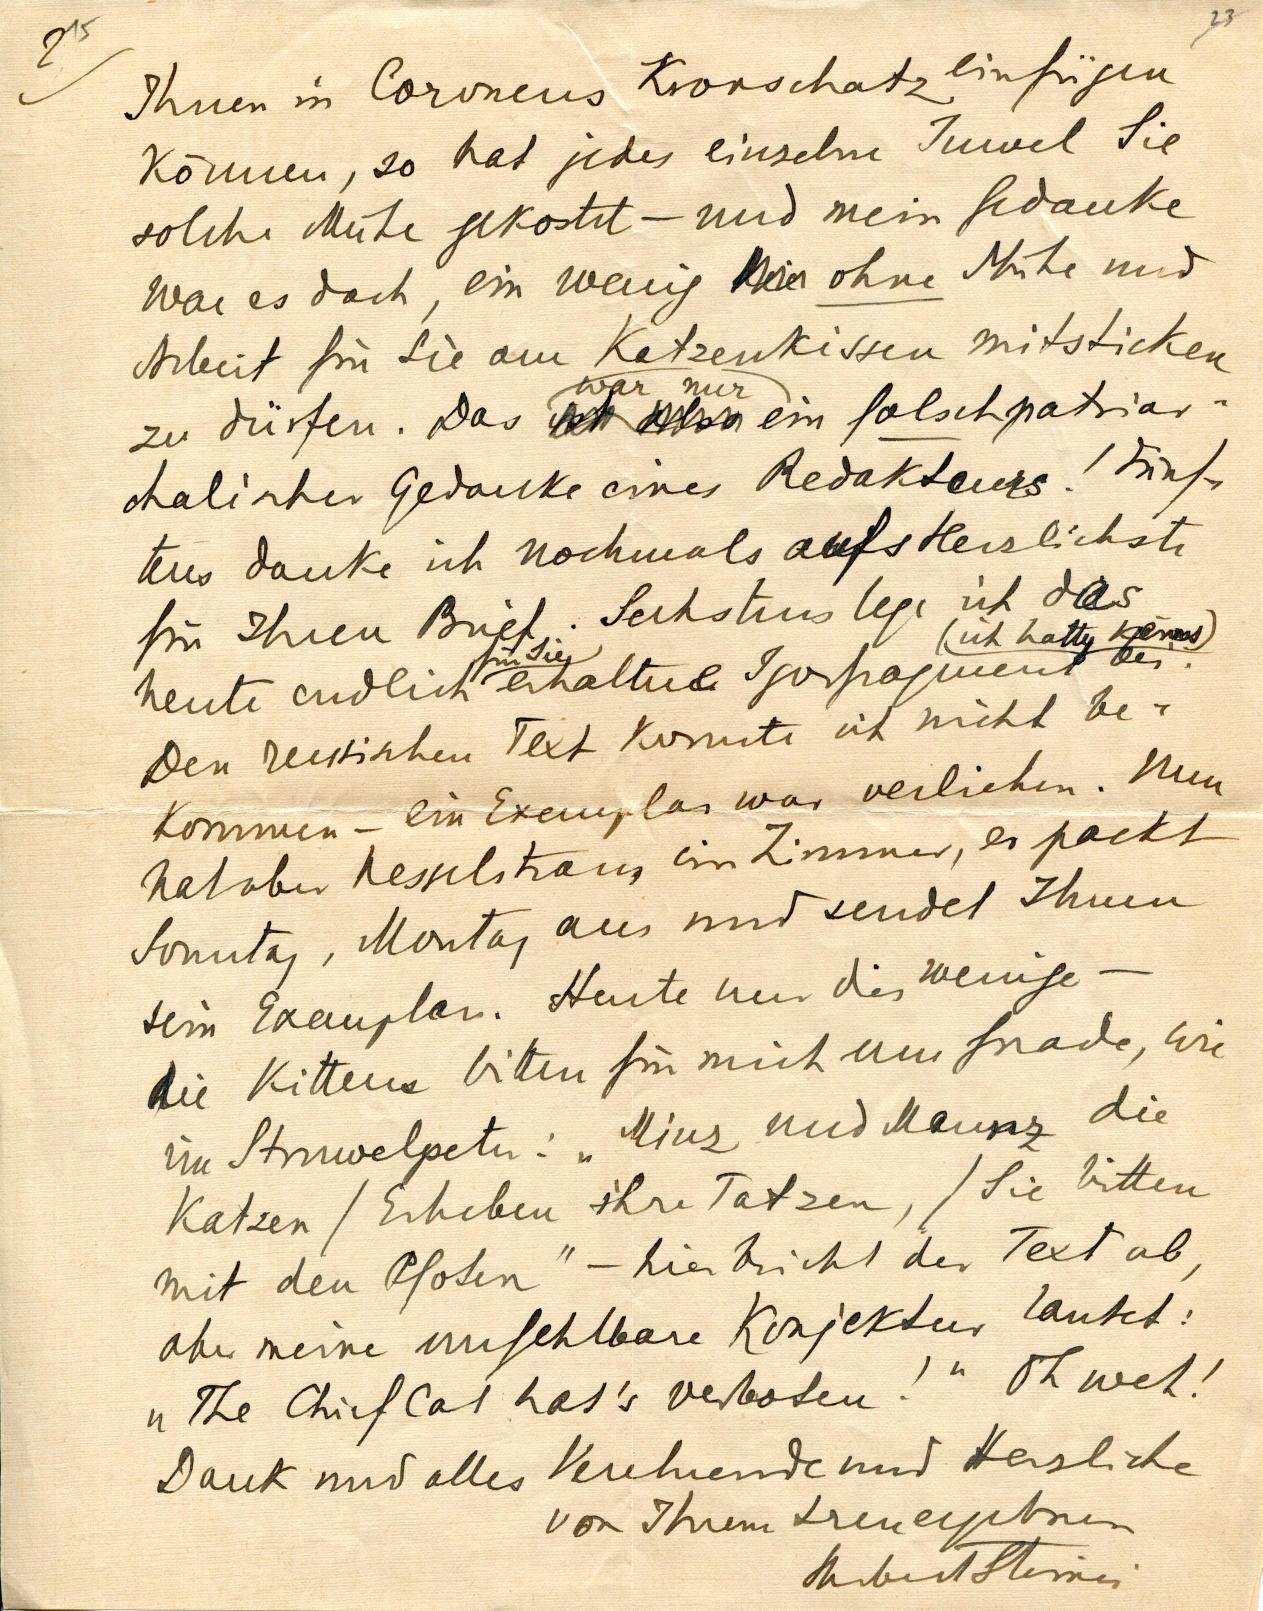 2 15
23
Ihnen in Coroneus Kronschatz einfügen
können, so hat jedes einzelne Juwel Sie
solche Mühe gekostet – und mein Gedanke
war es doch, ein wenig ohne Mühe und
Arbeit für Sie am Katzenkissen mitsticken
war nur
zu dürfen. Das ein falsch patriar-
chalischer Gedanke eines Redakteurs! Fünf-
tens danke ich nochmals aufs Herzlichste
für Ihren Brief. Sechstens lege ich das
(ich hatte keines)
für Sie
heute endlich erhaltne Igorfragment bei.
Den russischen Text konnte ich nicht be-
kommen – ein Exemplar war verliehen. Nun
hat aber ein Zimmer, er packt
Sonntag, Montag aus und sendet Ihnen
sein Exemplar. Heute nur dies wenige –
die Kittens bitten für mich um Gnade, wie
im Struwelpeter: „Minz und Maunz die
Katzen / Erheben ihre Tatzen, / Sie bitten
mit den Pfoten" – hier bricht der Text ab,
aber meine unfehlbare Konjektur lautet:
„The Chief Cat hat's verboten!" Oh weh!
Dank und alles Verehrende und Herzliche
von Ihrem treuergebnen
Herbert Steiner